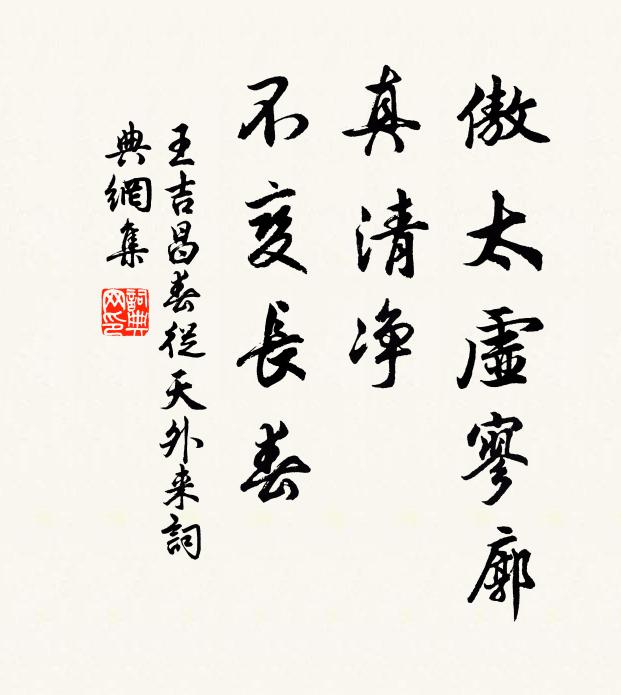 傲太虛寥廓
真清净
不变長春
王吉昌春從天外来詞
典網集
詞典网印